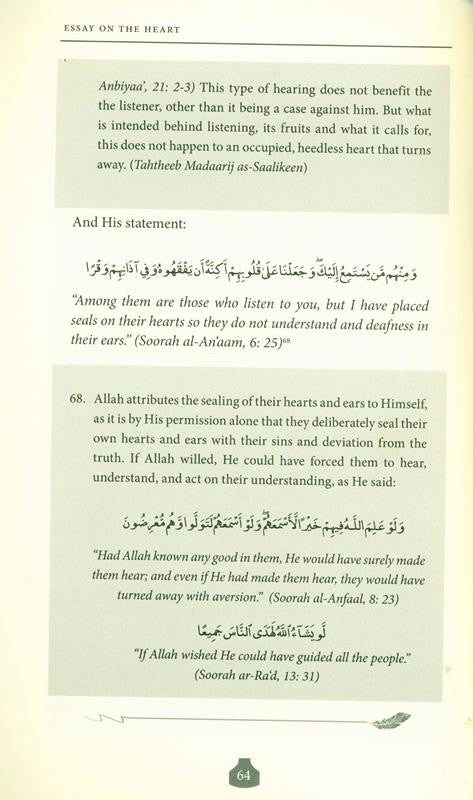 ESSAY ON THE HEART
Anbiyaa’, 21: 2-3) This type of hearing does not benefit the
the listener, other than it being a case against him. But what
is intended behind listening, its fruits and what it calls for,
this does not happen to an occupied, heedless heart that turns
away. (Tahtheeb Madaarij as-Saalikeen)
And His statement:
وَمِنْهُم مَّن يَسْتَمِعُ إِلَيْكَ ۖ وَجَعَلْنَا عَلَىٰ قُلُوبِهِمْ أَكِنَّةً أَن يَفْقَهُوهُ وَفِي آذَانِهِمْ وَقْرًا
“Among them are those who listen to you, but I have placed
seals on their hearts so they do not understand and deafness in
their ears.” (Soorah al-An‘aam, 6: 25)⁶⁸
68. Allah attributes the sealing of their hearts and ears to Himself,
as it is by His permission alone that they deliberately seal their
own hearts and ears with their sins and deviation from the
truth. If Allah willed, He could have forced them to hear,
understand, and act on their understanding, as He said:
وَلَوْ عَلِمَ اللَّهُ فِيهِمْ خَيْرًا لَّأَسْمَعَهُمْ ۖ وَلَوْ أَسْمَعَهُمْ لَتَوَلَّوا وَّهُم مُّعْرِضُونَ
“Had Allah known any good in them, He would have surely made
them hear; and even if He had made them hear, they would have
turned away with aversion.” (Soorah al-Anfaal, 8: 23)
لَّوْ يَشَاءُ اللَّهُ لَهَدَى النَّاسَ جَمِيعًا
“If Allah wished He could have guided all the people.”
(Soorah ar-Ra‘d, 13: 31)
64